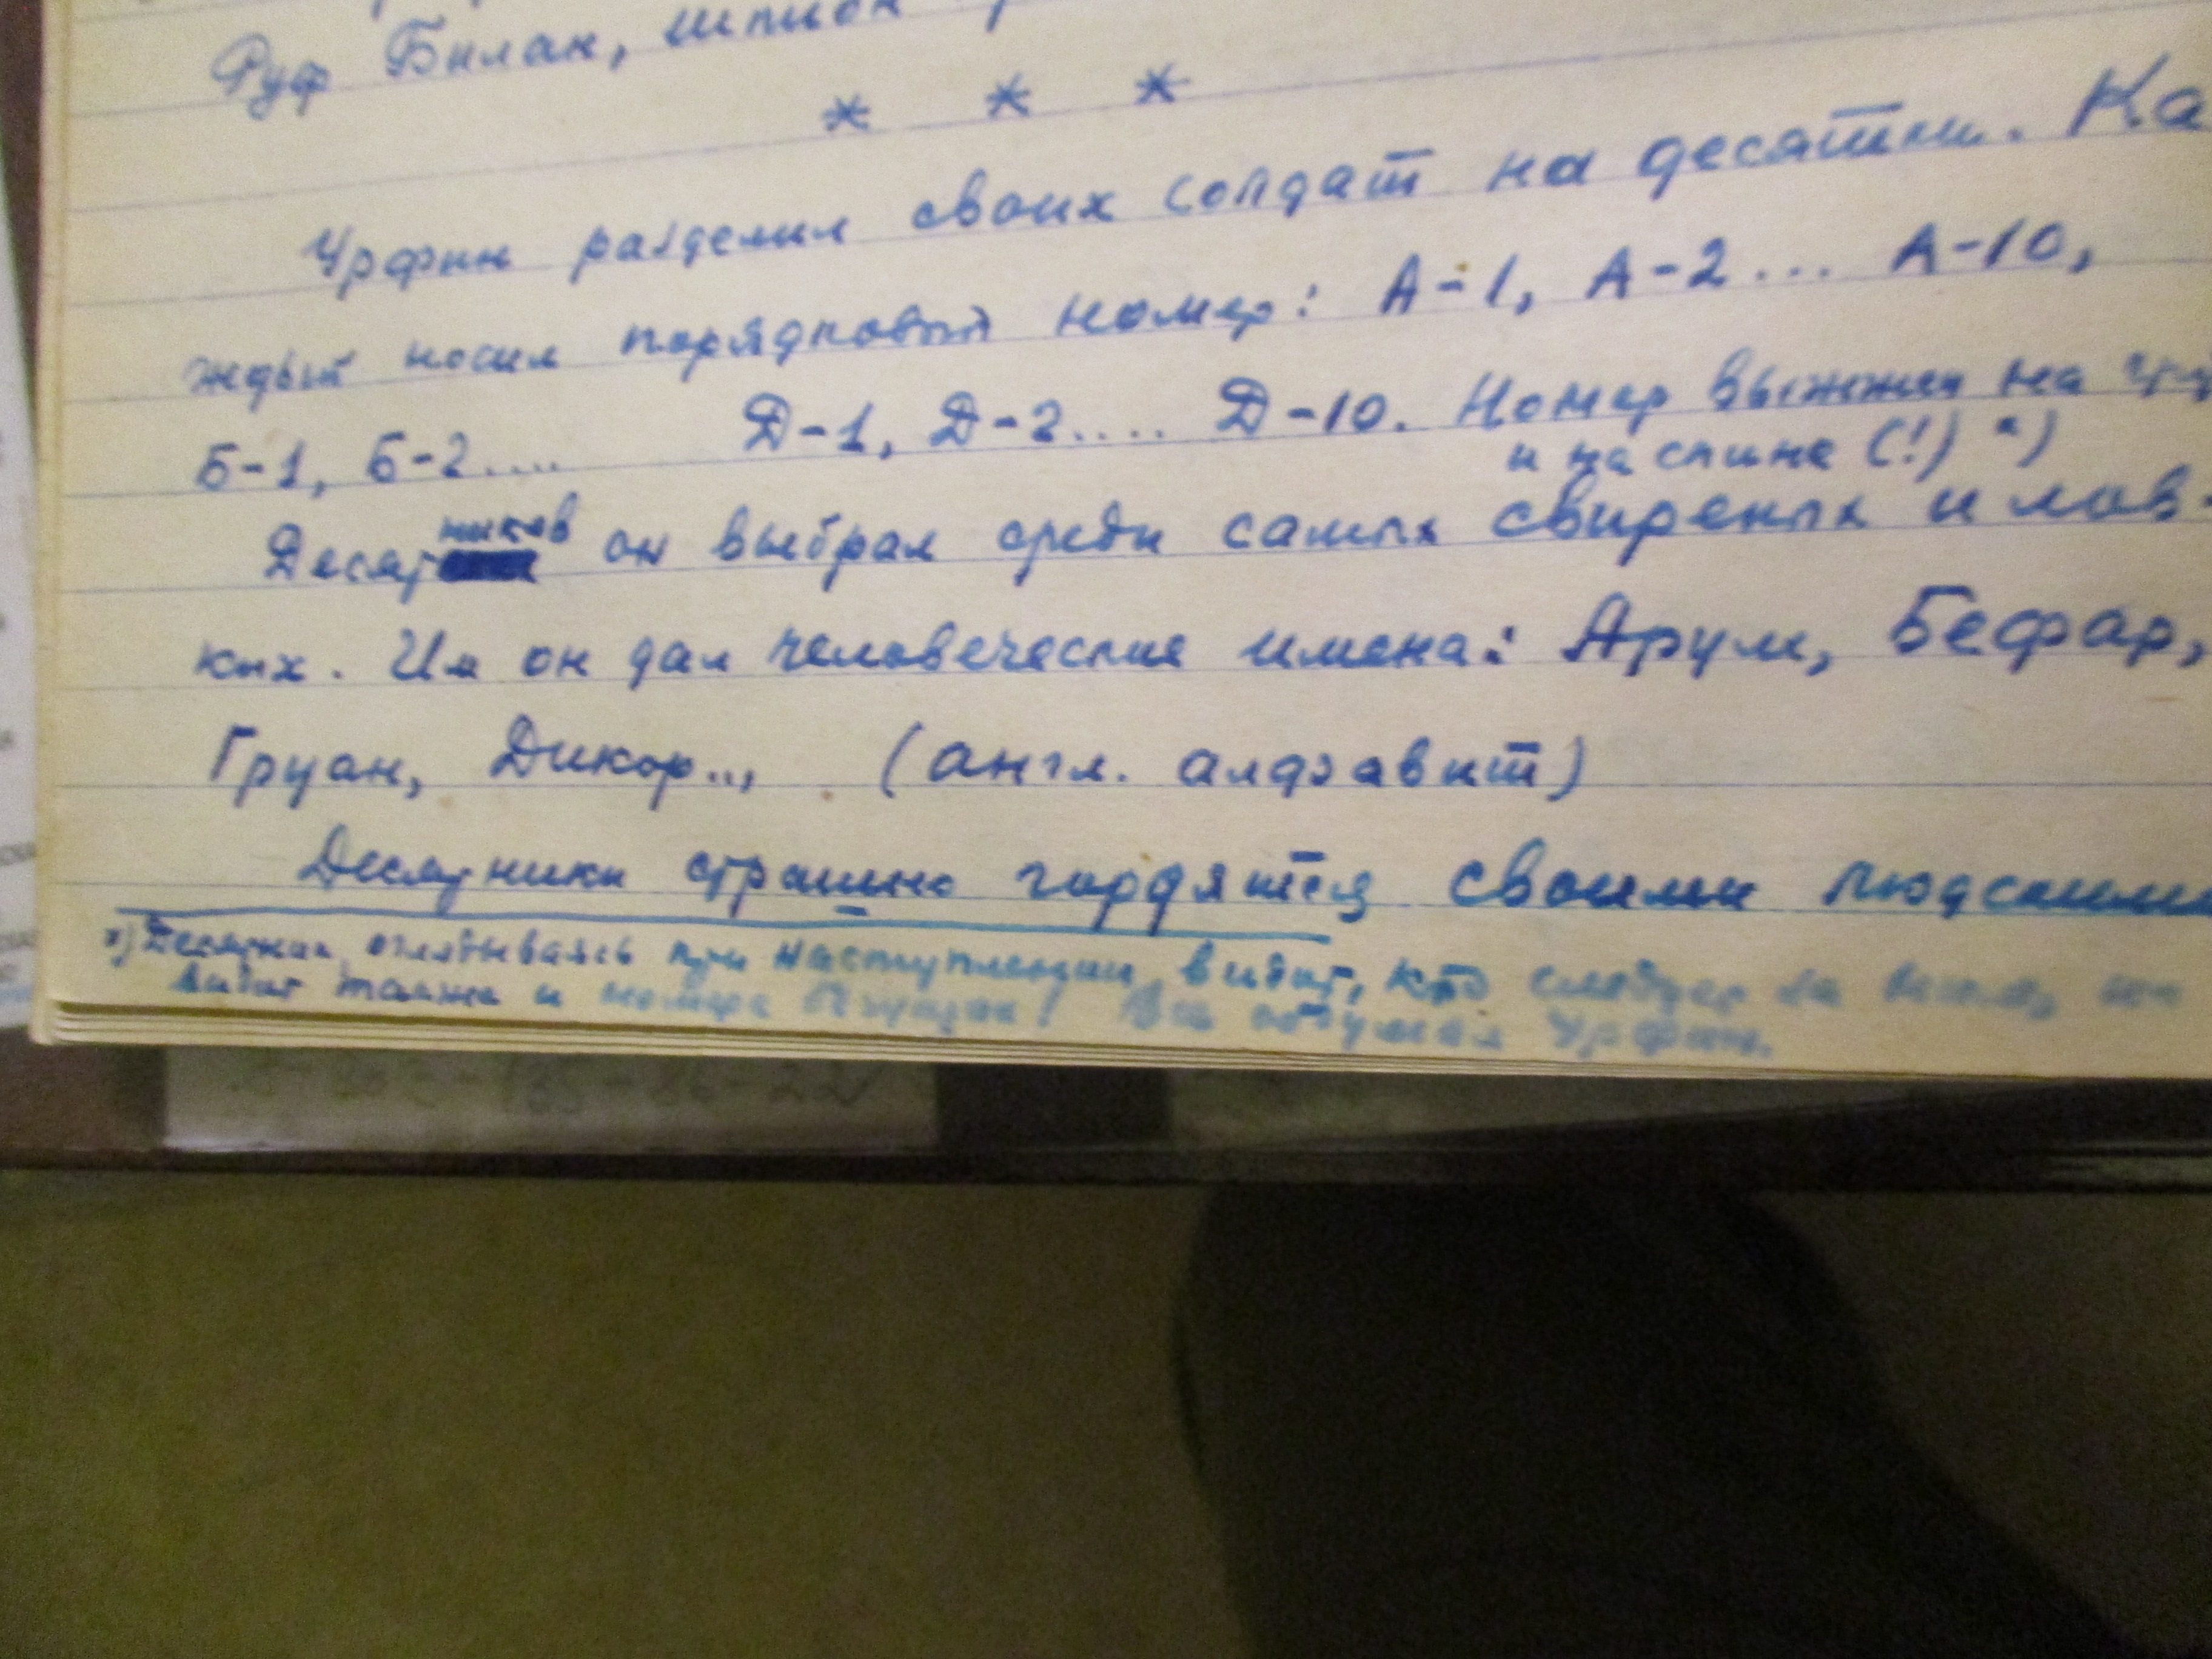 Руф Билан, шпион
* * *
Урфин разделил своих солдат на десятки. Ка
ждый носил порядковый номер: А-1, А-2... А-10,
Б-1, Б-2.... Д-1, Д-2.... Д-10. Номер выжжен на
и на спине (!) *)
Десятников он выбрал среди самых свирепых и лов-
ких. Им он дал человеческие имена: Арум, Бефар,
Груан, Дикор.., (англ. алфавит)
Десятники страшно гордятся своими людскими
*) Десятник, оглядываясь при наступлении, видит, кто следует за ним, но
видит также и номера бегущих! Все обдумал Урфин.